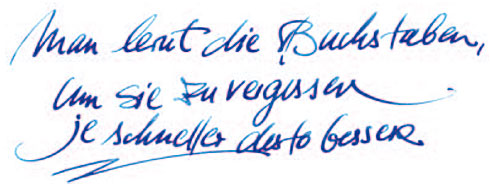 Man lernt die Buchstaben,
um sie zu vergessen
je schneller desto besser.